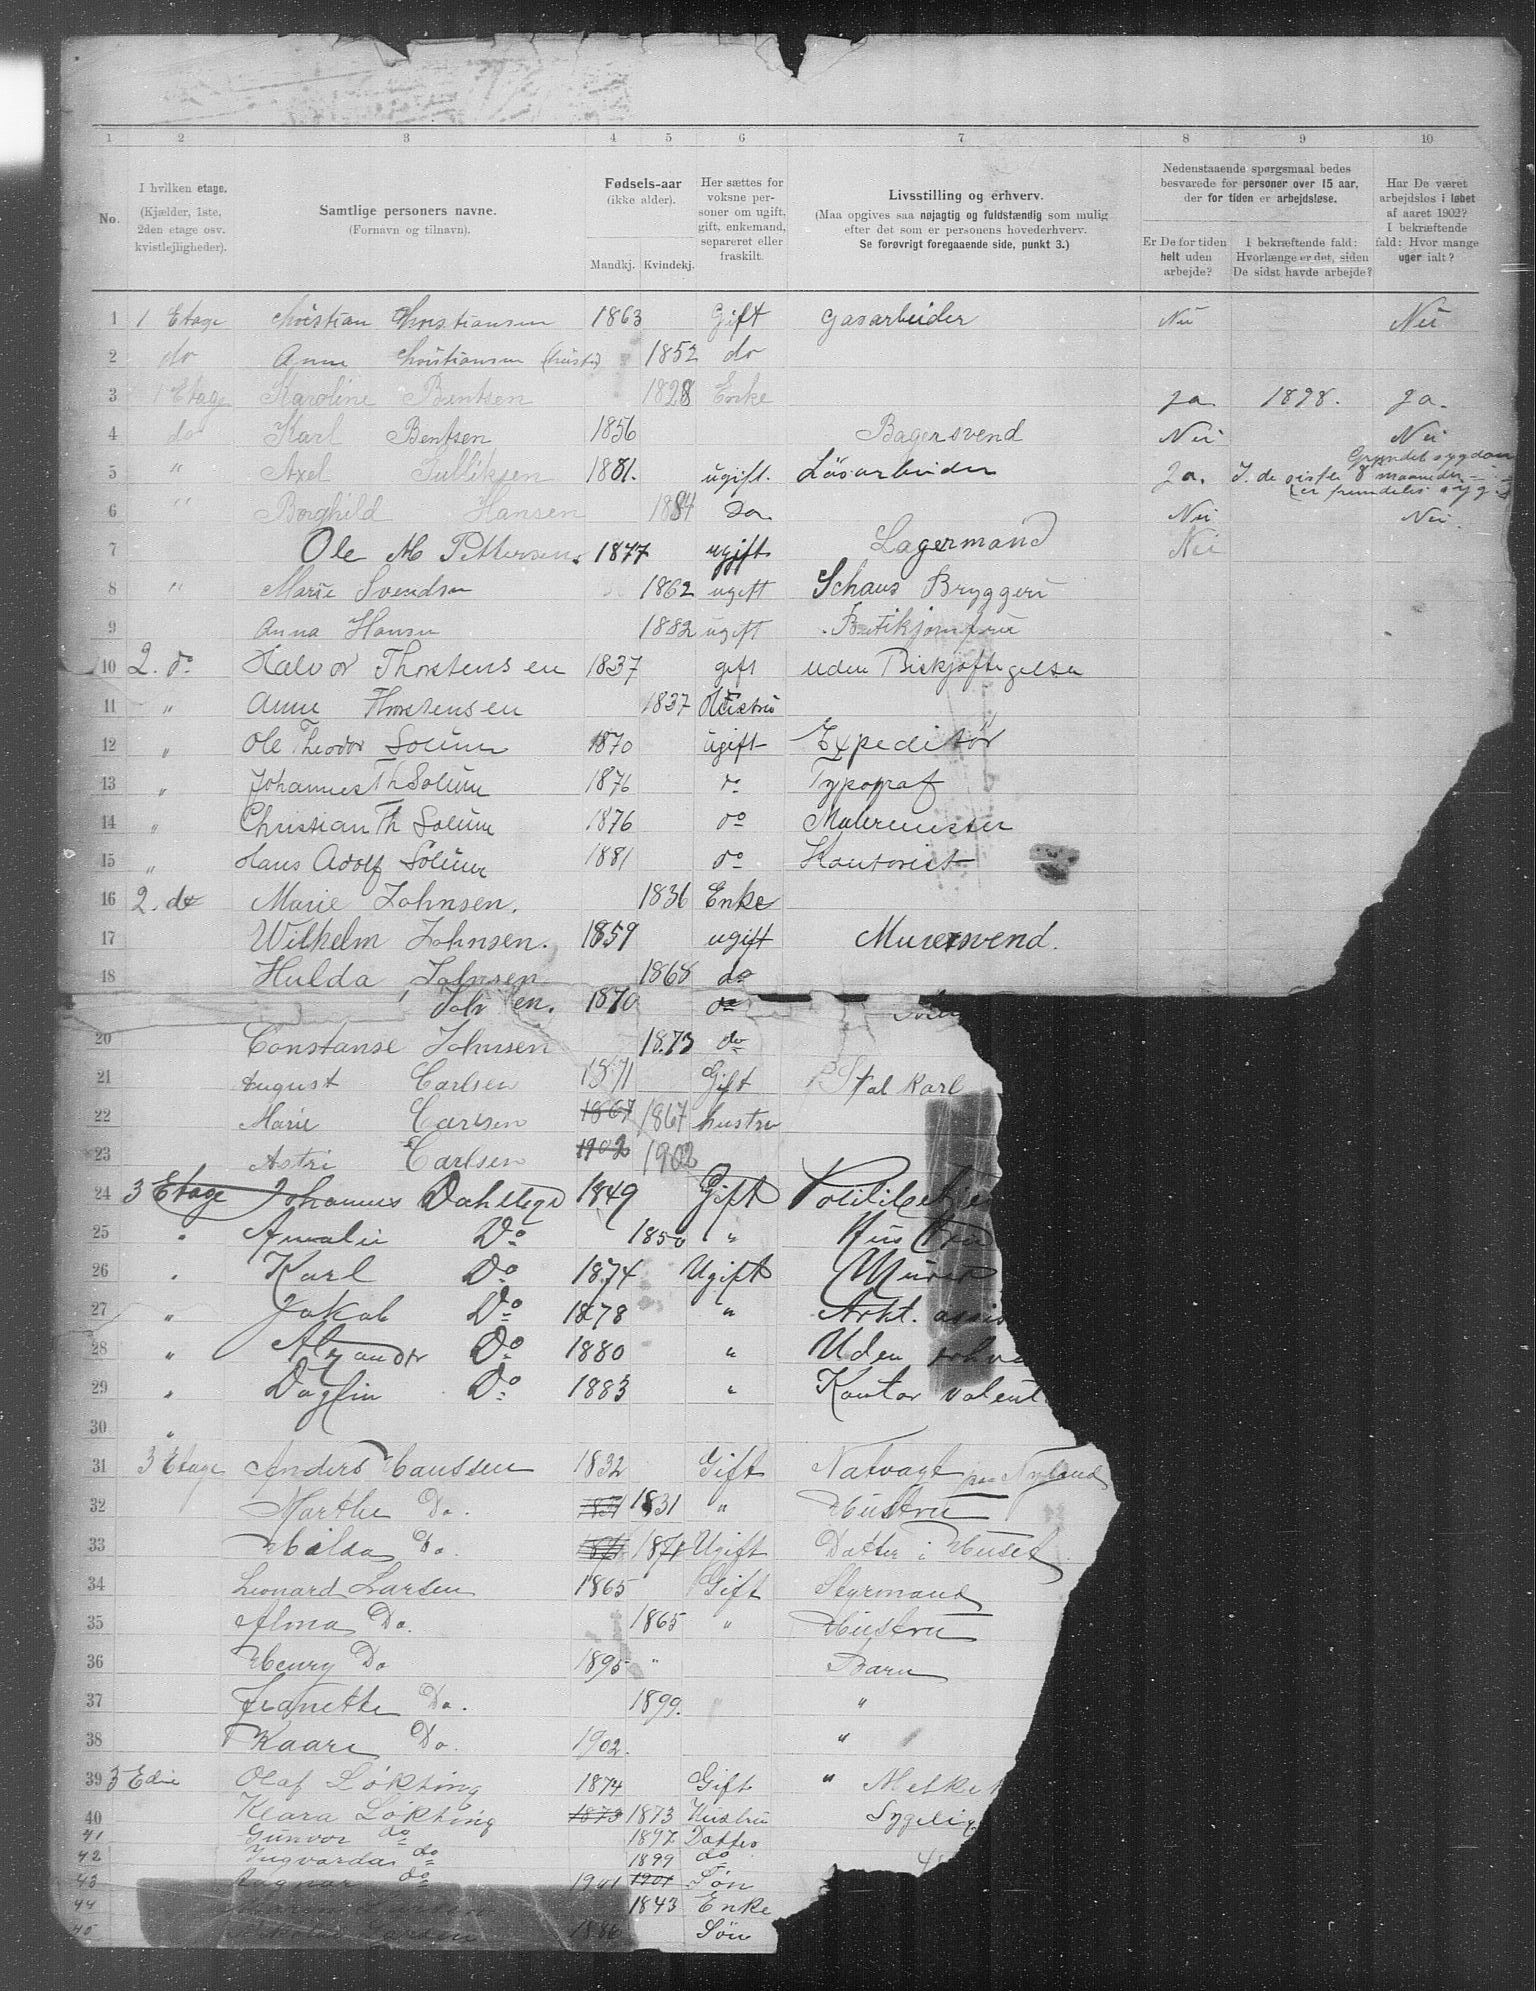 1 2 3 4 5 6 7 8 9 10
No.
I hvilken etage. (Kjælder, 1ste, 2den etage osv. kvistlejligheder).
Samtlige personers navne. (Fornavn og tilnavn).
Fødsels-aar (ikke alder). Mandkj. Kvindekj.
Her sættes for voksne personer om ugift, gift, enkemand, separeret eller fraskilt.
Livsstilling og erhverv. (Maa opgives saa nøjagtig og fuldstændig som mulig efter det som er personens hovederhverv. Se forøvrigt foregaaende side, punkt 3.)
Nedenstaaende spørgsmaal bedes besvarede for personer over 15 aar, der for tiden er arbejdsløse.
Er De for tiden helt uden arbejde?
I bekræftende fald: Hvorlænge er det, siden De sidst havde arbejde?
Har De været arbejdsløs i løbet af aaret 1902? I bekræftende fald: Hvor mange uger ialt?
1 1 Etage Christian Christiansen 1863 Gift Gasarbeider Nei Nei
2 do Anne Christiansen (hustru) 1852 do
3 1 Etage Karoline Bentsen 1828 Enke Ja 1898. Ja.
4 do Karl Bentsen 1856 Bagersvend Nei Nei
5 " Axel Gulliksen 1881. ugift. Løsarbeider Ja. I de siste 8 maaneder Grundet sygdom er fremdeles syg
6 " Borghild Hansen 1884 Do Nei Nei.
7 Ole M Pettersen. 1877 ugift Lagermand Nei
8 " Marie Svendsen 1862 ugift Schous Bryggeri
9 Anna Hansen 1882 ugift Butikjomfru
10 2. do Halvor Thorstensen 1837 gift uden Beskjæftigelse
11 " Anne Thorstensen 1837 Hustru
12 " Ole Theodor Solum 1870 ugift Expeditør
13 " Johannes Th Solum 1876 do Typograf
14 " Christian Th Solum 1876 do Malermester
15 " Hans Adolf Solum 1881 do Kontorist
16 2. do Marie Johnsen. 1836 Enke
17 Wilhelm Johnsen. 1859 ugift Murersvend.
18 Hulda Johnsen 1868 do
Johnsen. 1870 do
20 Constanse Johnsen 1873 do
21 August Carlsen 1871 Gift Stal Karl
22 Marie Carlsen 1867 1867 hustru
23 Astri Carlsen 1902 1902
24 3 Etage Johannes 1849 Gift
25 " Amalie Do 1850 " Hustru
26 " Karl Do 1874 Ugift Murer
27 " Jakob Do 1878 " Arkt. assis
28 " Alexander Do 1880 " Uden erhve
29 " Dagfin Do 1883 " Kontor volent
30 "
31 3 Etage Anders Hanssen 1832 Gift Natvagt paa Nyland
32 Marthe Do. 1831 1831 " Hustru
33 Hilda Do. 1871 1871 Ugift Datter i Huset
34 Leonard Larsen 1865 Gift Styrmand
35 Alma Do. 1865 " Hustru
36 Henry Do 1895 " Barn
37 Jeanette Do. 1899. "
38 Kaare Do. 1902. "
39 3 Edie Olaf Løkting 1874 Gift " Melke
40 Klara Løkting 1873 1873 Hustru Sygelig
41 Gunvor do 1897 Datter
42 Ingvarda do 1899 do
43 Ragnar do 1901 1901 Søn
44 1843 Enke
45 Larsen 1886 Søn